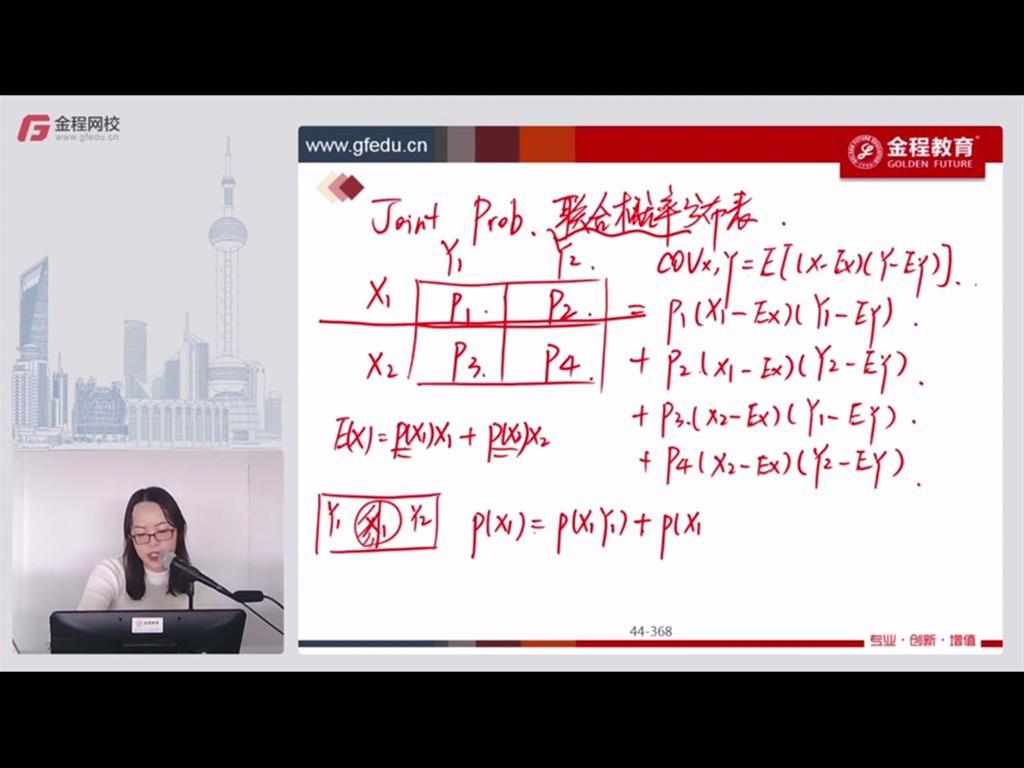 金程网校
www.gfedu.cn
www.gfedu.cn
金程教育
GOLDEN FUTURE
Joint Prob. 联合概率分布表.
Y1 Y2.
X1 P1. P2.
X2 P3. P4.
COVx,y=E[(X-Ex)(Y-Ey)]..
= P1(X1-Ex)(Y1-Ey).
+ P2.(X1-Ex)(Y2-Ey).
+ P3.(X2-Ex)(Y1-EY).
+ P4(X2-Ex)(Y2-EY).
E(X)=P(X1)X1+P(X2)X2
Y1 X1 Y2
P(X1)=P(X1Y1)+P(X1
44-368
专业·创新·增值